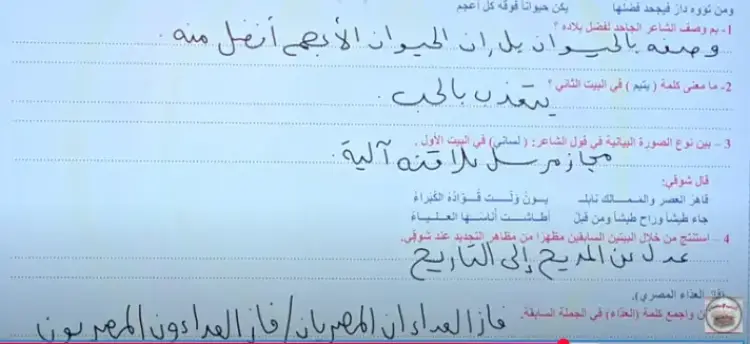 ومن تؤوه دار فيجحد فضلها يكن حيواناً فوقه كل أعجم
1- بم وصف الشاعر الجاحد لفضل بلاده ؟
وصفه بالحيوان بل إن الحيوان الأعجم أفضل منه .
2- ما معنى كلمة ( يتيم ) في البيت الثاني ؟
يتعذب بالحب .
3 – بين نوع الصورة البيانية في قول الشاعر: ( لساني) في البيت الأول .
مجاز مرسل علاقته آلية .
قال شوقي:
قاهر العصر والممالك نابلـ يون ولت قواده الكبراء
جاء طيشاً وراح طيشاً ومن قبل أطاشت أناسها العلياء
4 – استنتج من خلال البيتين السابقين مظهراً من مظاهر التجديد عند شوقي.
عدل من المديح إلى التاريخ
العداء المصري).
ن واجمع كلمة (العداء) في الجملة السابقة.
فاز العداءان المصريان / فاز العداءون المصريون